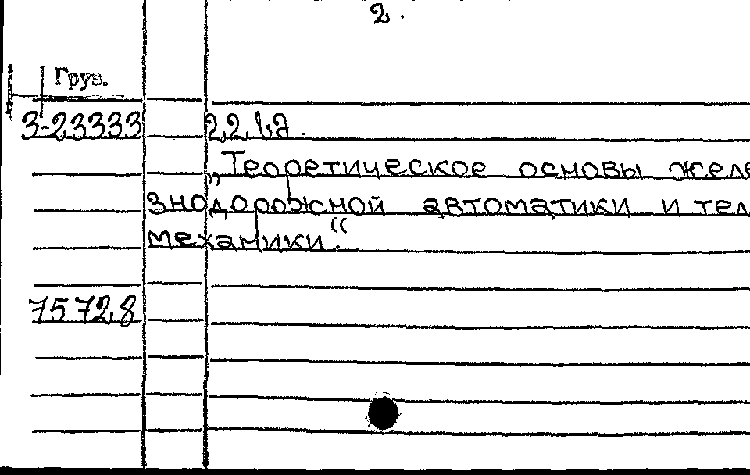 2.
Груз.
3-23333 22 l.д.
„Теоретическое основы желе
знодорожной автоматики и тел
механики“.
75728